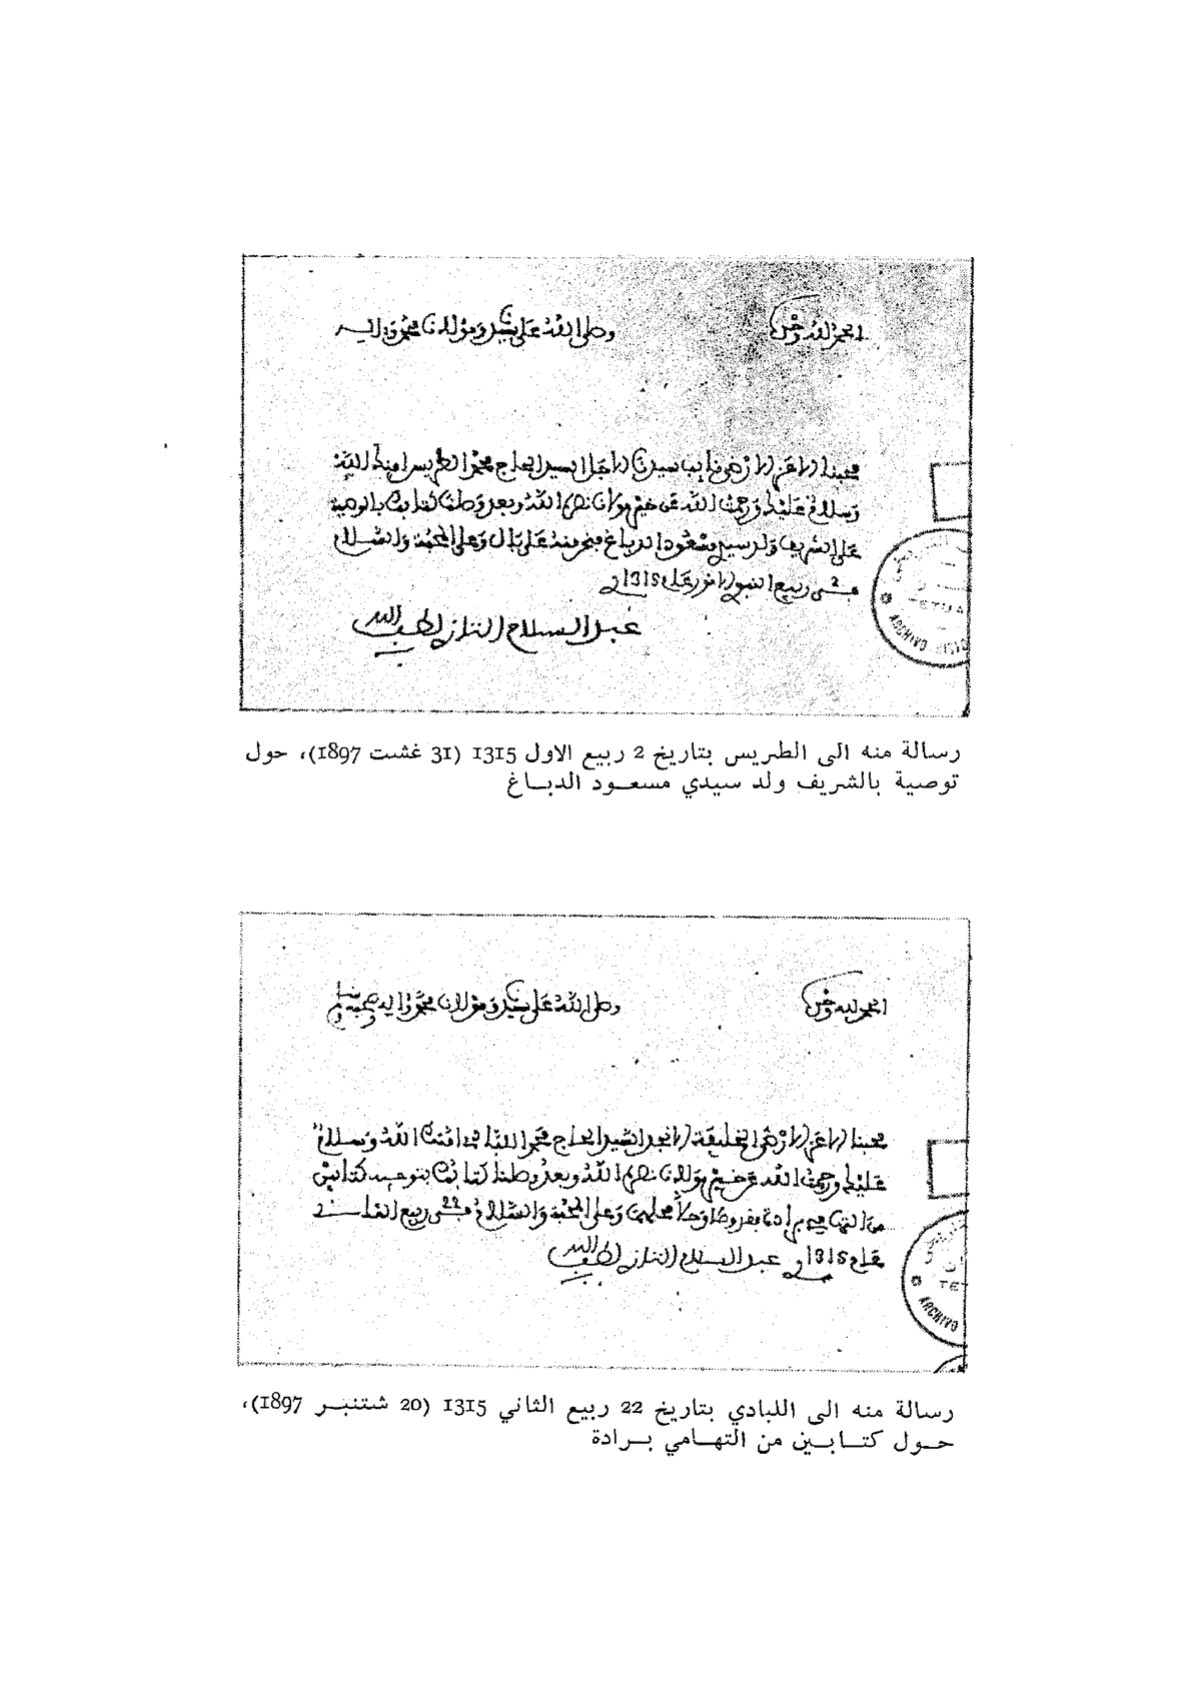 الحمد لله وحده
وصلى الله على سيدنا ومولانا محمد وآله
محبنا الأعز الأرضى نايب سيدنا الأجل السيد الحاج محمد الطريس أمنك الله
وسلام عليك ورحمت الله عن خير مولانا نصره الله وبعد وصلنا كتابك بالوصية
على الشريف ولد سيدي مسعود الدباغ فنحن منه على بال وعلى المحبة والسلام
في 2 ربيع النبوي الأنور عام 1315
عبد السلام التازي لطف الله به
رسالة منه الى الطريس بتاريخ 2 ربيع الاول 1315 (31 غشت 1897)، حول
توصية بالشريف ولد سيدي مسعود الدباغ
الحمد لله وحده
وصلى الله على سيدنا ومولانا محمد وآله وصحبه وسلم
محبنا الأعز الأرضى الخليفة الأنجد السيد الحاج محمد اللبادي أمنك الله وسلام
عليك ورحمت الله عن خير مولانا نصره الله وبعد وصلنا كتابك بتوجيه كتابين
من التهامي برادة فقد وصلا وعلى المحبة والسلام في 22 ربيع الثاني
عام 1315 عبد السلام التازي لطف الله به
رسالة منه الى اللبادي بتاريخ 22 ربيع الثاني 1315 (20 شتنبر 1897)،
حول كتابين من التهامي برادة
ARCHIVO
TETUA
ARCHIVO
TE